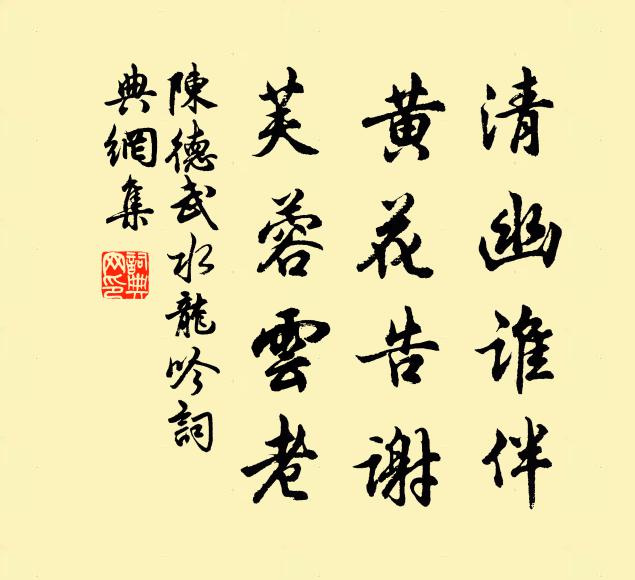 清幽谁伴
黄花告谢
芙蓉雲老
陳德武水龍吟詞
典網集
詞典网印